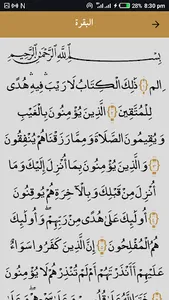 N 21% 8:30 pm
البقرة
بِسْمِ اللَّهِ الرَّحْمَٰنِ الرَّحِيمِ
الم ۝ ذَٰلِكَ الْكِتَابُ لَا رَيْبَ ۛ فِيهِ ۛ هُدًى
لِلْمُتَّقِينَ ۝ الَّذِينَ يُؤْمِنُونَ بِالْغَيْبِ
وَيُقِيمُونَ الصَّلَاةَ وَمِمَّا رَزَقْنَاهُمْ يُنْفِقُونَ
۝ وَالَّذِينَ يُؤْمِنُونَ بِمَا أُنْزِلَ إِلَيْكَ وَمَا
أُنْزِلَ مِنْ قَبْلِكَ وَبِالْآخِرَةِ هُمْ يُوقِنُونَ
۝ أُولَٰئِكَ عَلَىٰ هُدًى مِنْ رَبِّهِمْ ۖ وَأُولَٰئِكَ
هُمُ الْمُفْلِحُونَ ۝ إِنَّ الَّذِينَ كَفَرُوا سَوَاءٌ
عَلَيْهِمْ أَأَنْذَرْتَهُمْ أَمْ لَمْ تُنْذِرْهُمْ لَا يُؤْمِنُونَ